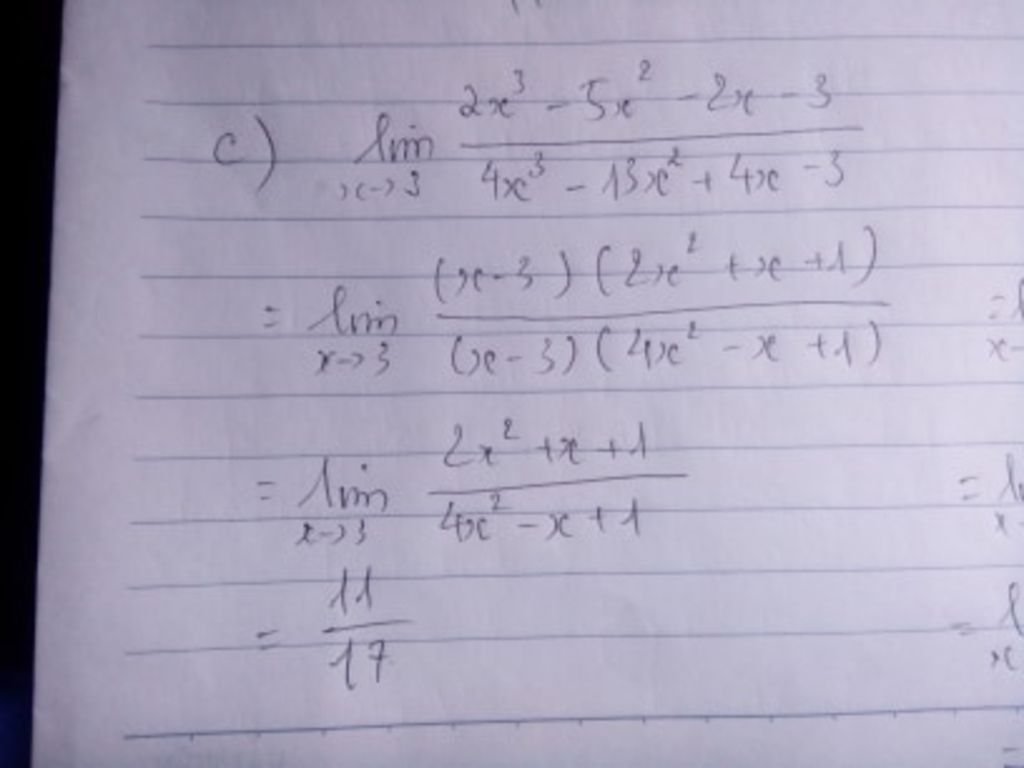 c) lim x→3 (2x³ - 5x² - 2x - 3)/(4x³ - 13x² + 4x - 3)
= lim x→3 (x-3)(2x² + x + 1)/(x-3)(4x² - x + 1)
= lim x→3 (2x² + x + 1)/(4x² - x + 1)
= 11/17